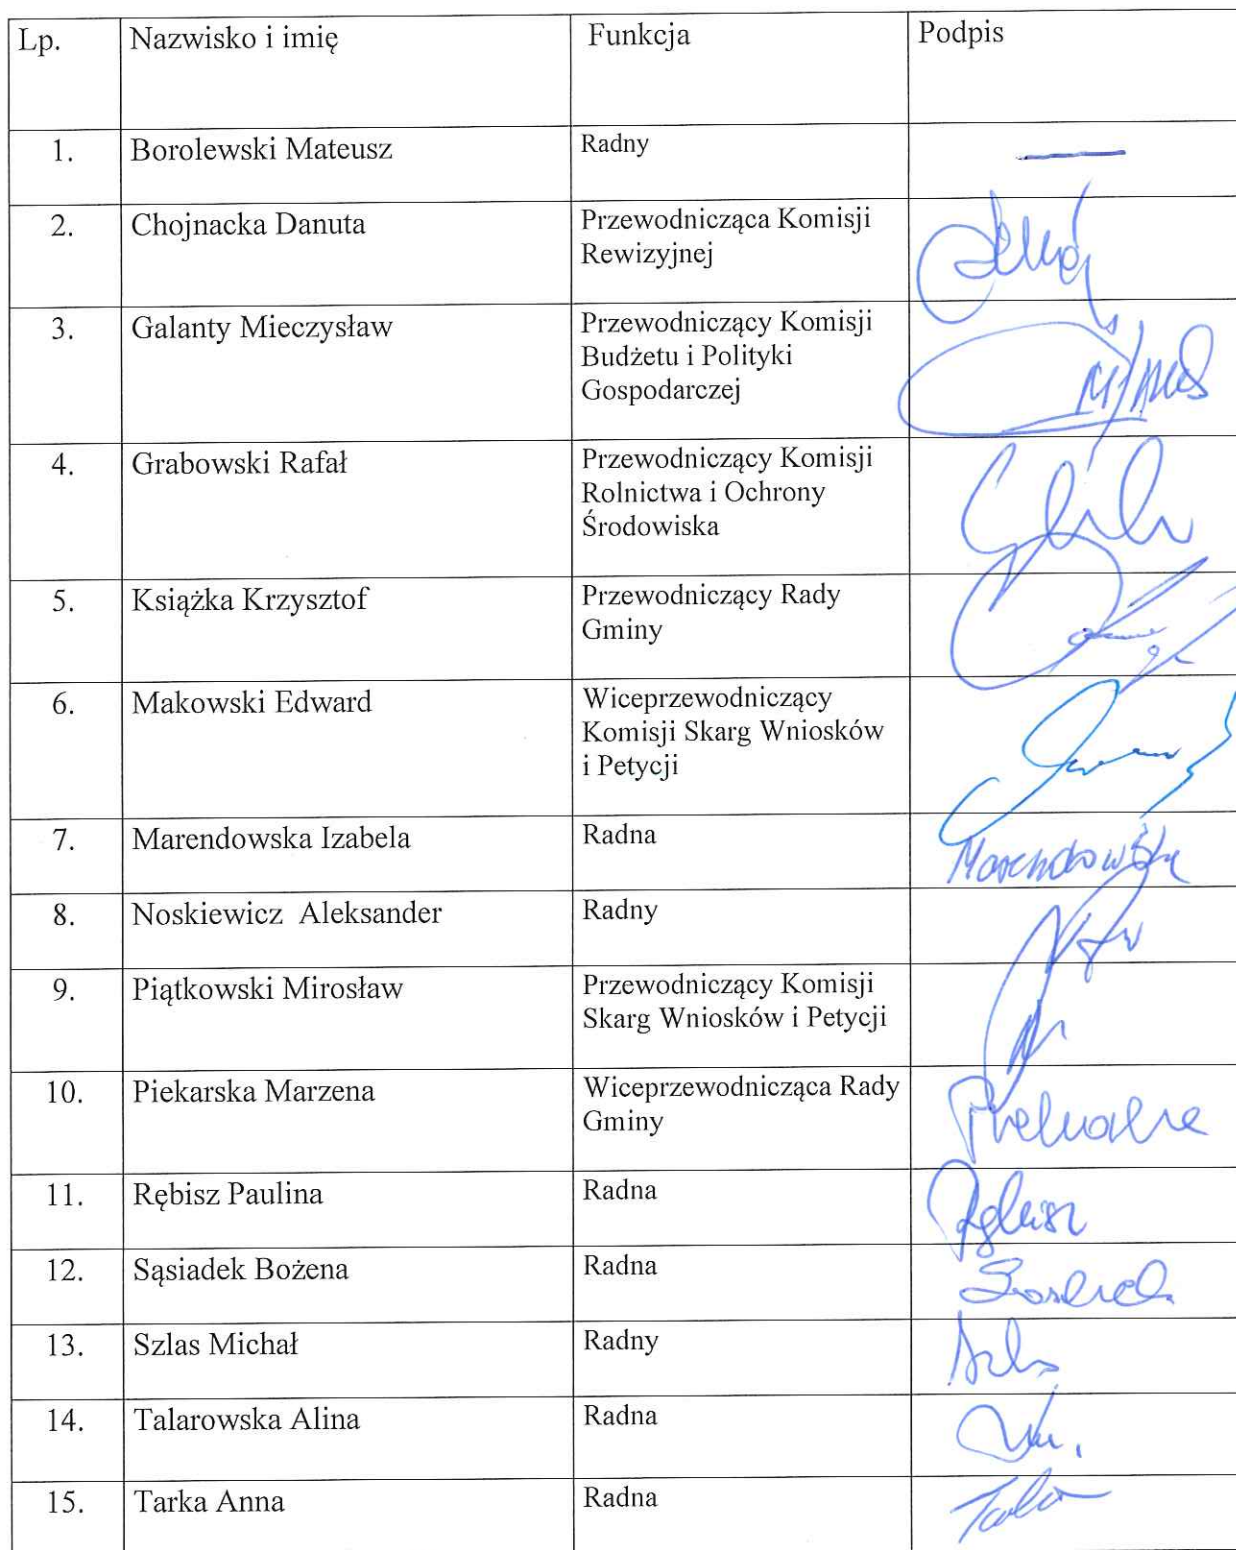 Lp. Nazwisko i imię Funkcja Podpis
1. Borolewski Mateusz Radny —
2. Chojnacka Danuta Przewodnicząca Komisji
Rewizyjnej
3. Galanty Mieczysław Przewodniczący Komisji
Budżetu i Polityki
Gospodarczej
4. Grabowski Rafał Przewodniczący Komisji
Rolnictwa i Ochrony
Środowiska
5. Książka Krzysztof Przewodniczący Rady
Gminy
6. Makowski Edward Wiceprzewodniczący
Komisji Skarg Wniosków
i Petycji
7. Marendowska Izabela Radna Marendowska
8. Noskiewicz Aleksander Radny
9. Piątkowski Mirosław Przewodniczący Komisji
Skarg Wniosków i Petycji
10. Piekarska Marzena Wiceprzewodnicząca Rady
Gminy
11. Rębisz Paulina Radna
12. Sąsiadek Bożena Radna
13. Szlas Michał Radny
14. Talarowska Alina Radna
15. Tarka Anna Radna